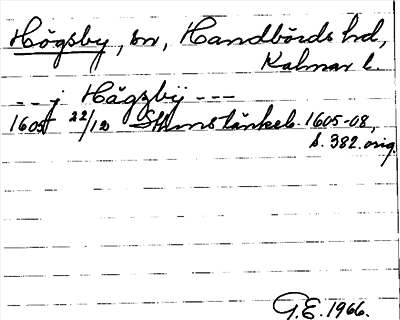 Högsby, sn, Handbörds hd,
Kalmar l.
- - j Högzbÿ - - -
1605 22/12 1605-08,
s. 382. orig.
G.E. 1966.